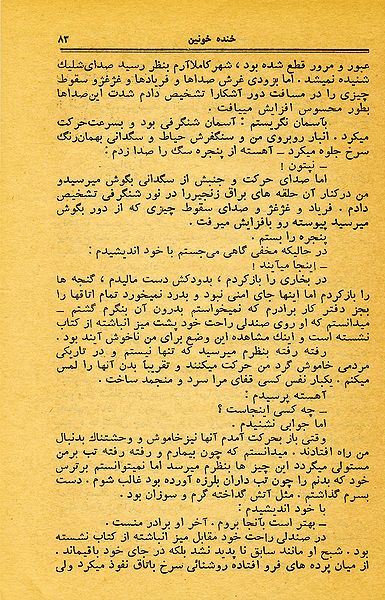 خنده خونین ۸۳
عبور و مرور قطع شده بود ، شهر کاملا آرم بنظر رسید صدای شلیک
شنیده نمیشد . اما بزودی غرش صداها و فریادها و غژغژو سقوط
چیزی را در مسافت دور آشکارا تشخیص دادم شدت این صداها
بطور محسوس افزایش مییافت .
بآسمان نگریستم : آسمان شنگرفی بود و بسرعت حرکت
میکرد . انبار روبروی من و سنگفرش حیاط و سگدانی بهمان رنگ
سرخ جلوه میکرد ــ آهسته از پنجره سگ را صدا زدم :
ــ نپتون !
اما صدای حرکت و جنبش از سگدانی بگوش میرسیدو
من درکنار آن حلقه های براق زنجیررا در نور شنگرفی تشخیص
دادم . فریاد و غژغژ و صدای سقوط چیزی که از دور بگوش
میرسید پیوسته رو بافزایش میرفت .
پنجره را بستم .
در حالیکه مخفی گاهی می‌جستم با خود اندیشیدم :
ــ اینجا میآیند !
در بخاری را بازکردم ، بدودکش دست مالیدم ، گنجه ها
را بازکردم اما اینها جای امنی نبود و بدرد نمیخورد تمام اتاقها را
بجز دفتر کار برادرم که نمیخواستم بدرون آن بنگرم گشتم ــ
میدانستم که او روی صندلی راحت خود پشت میز انباشته از کتاب
نشسته است و اینك مشاهده این وضع برای من ناخوش آیند بود .
رفته رفته بنظرم میرسید که تنها نیستم و در تاریکی
مردمی خاموش گرد من حرکت میکنند و تقریباً بدن آنها را لمس
میکنم . یکبار نفس کسی قفای مرا سرد و منجمد ساخت .
آهسته پرسیدم :
ــ چه کسی اینجاست ؟
اما جوابی نشنیدم .
وقتی باز بحرکت آمدم آنها نیزخاموش و وحشتناك بدنبال
من راه افتادند . میدانستم که چون بیمارم و رفته رفته تب برمن
مستولی میگردد این چیز ها بنظرم میرسد اما نمیتوانستم برترس
خود که بدنم را چون تب داران بلرزه آورده بود غالب شوم . دست
بسرم گذاشتم . مثل آتش گداخته گرم و سوزان بود .
با خود اندیشیدم :
ــ بهتر است بآنجا بروم . آخر او برادر منست .
در صندلی راحت خود مقابل میز انباشته از کتاب نشسته
بود . شبح او مانند سابق نا پدید نشد بلکه در جای خود باقیماند .
از میان پرده های فرو افتاده روشنائی سرخ باتاق نفوذ میکرد ولی